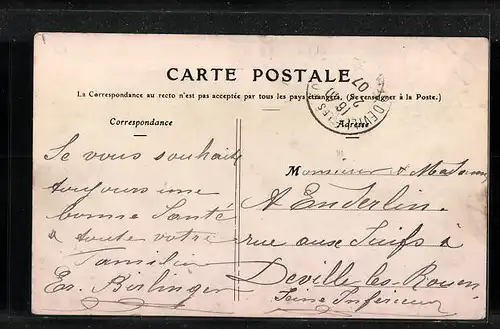 CARTE POSTALE
La Correspondance au recto n'est pas acceptée par tous les pays étrangers. (Se renseigner à la Poste.)
Correspondance
Adresse
Je vous souhaite
toujours une
bonne Santé
a toute votre
Familie
Er. Birlinger
Monsieur & Madame
A Enderlin
rue aux Juifs à
Deville-les-Rouen
Seine Inférieure
DEVILLE
07